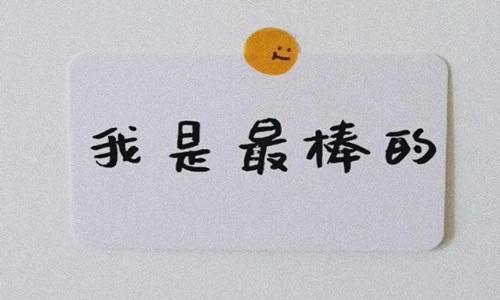 我是最棒的